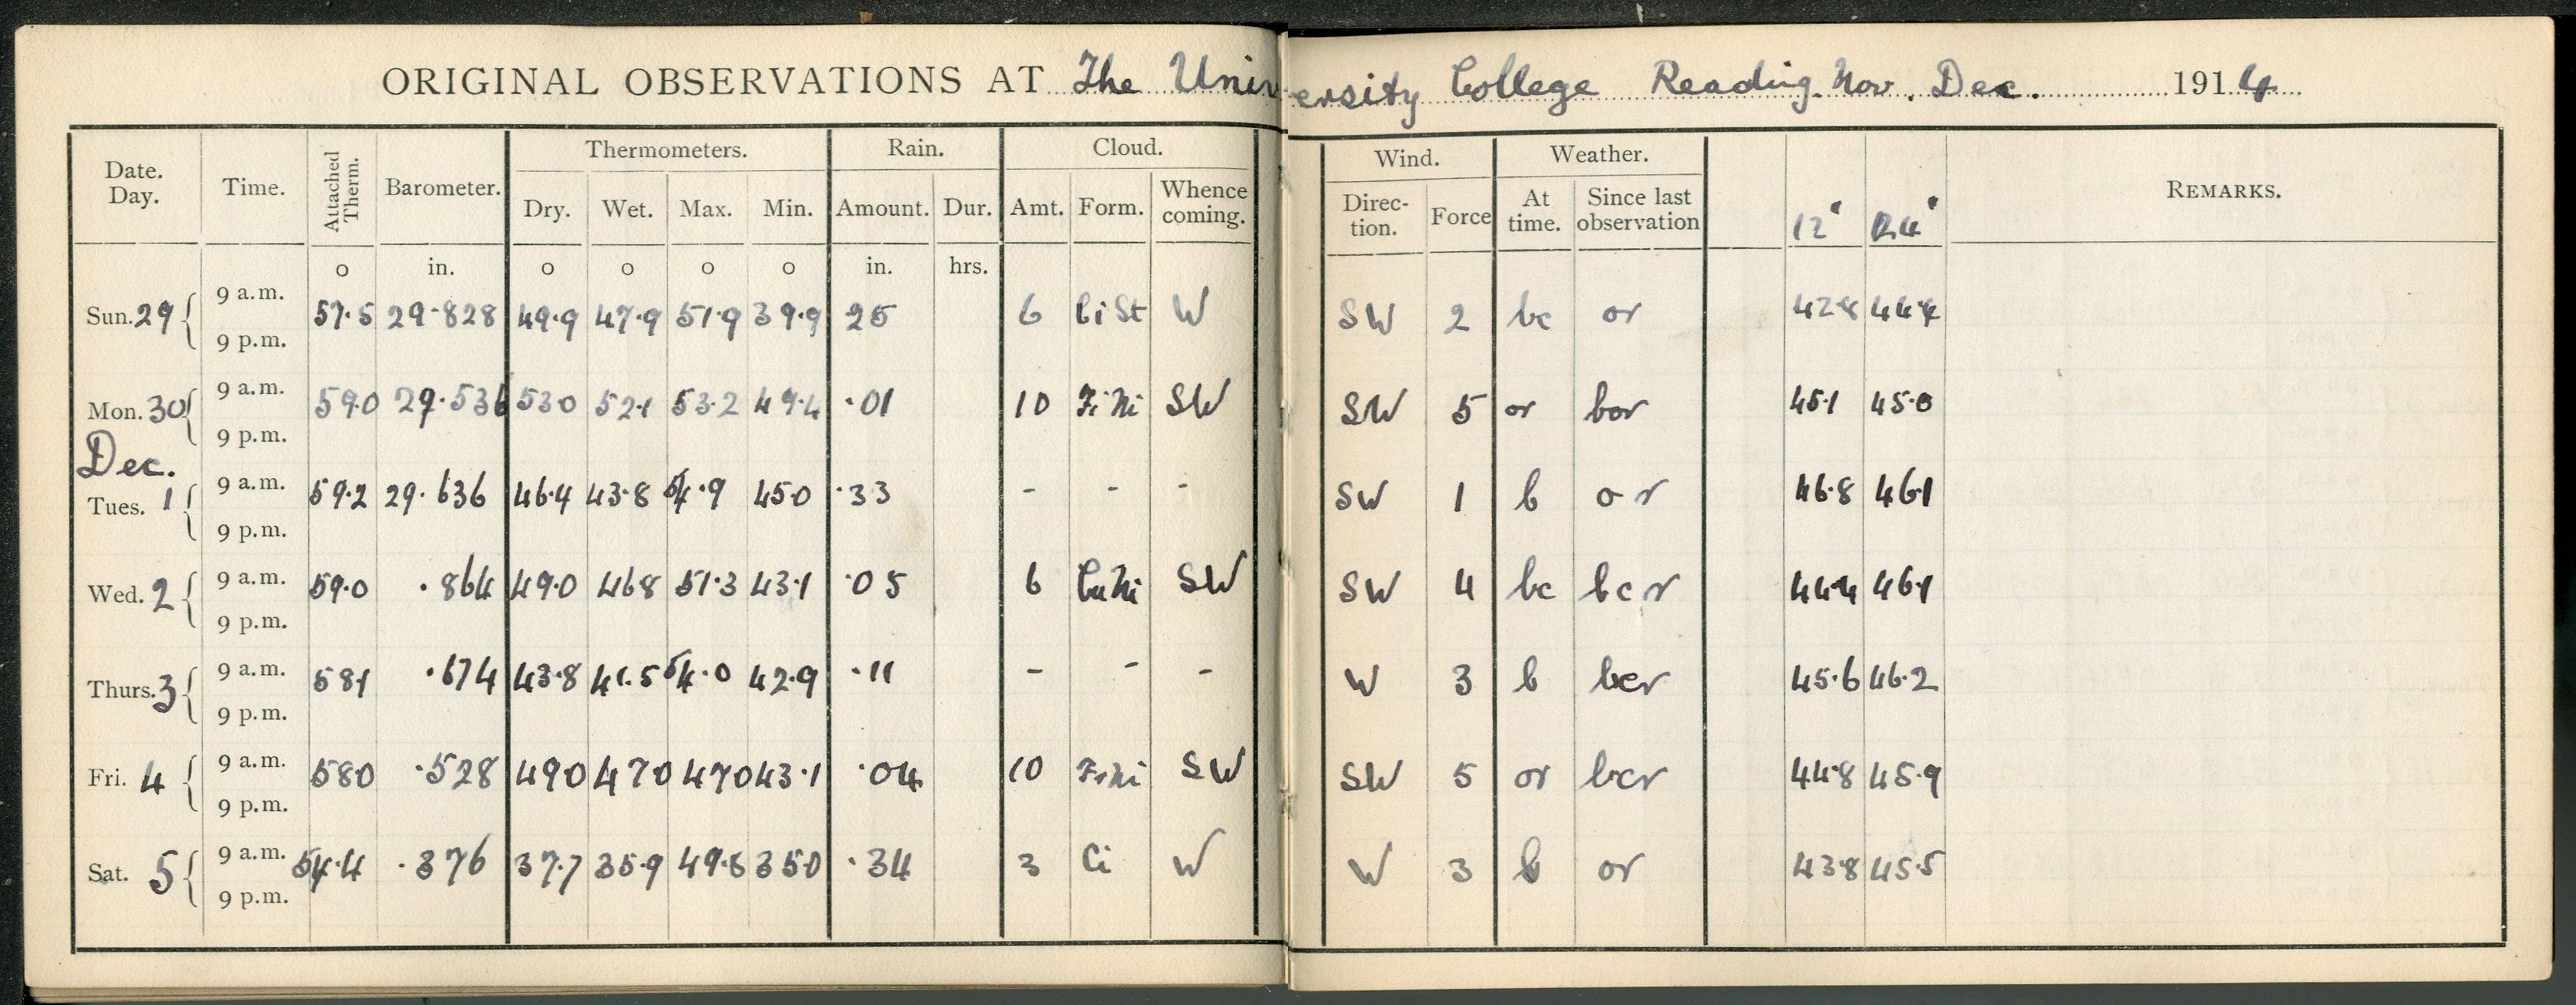 ORIGINAL OBSERVATIONS AT The University College Reading. Nov. Dec. 1914
Thermometers. Rain. Cloud. Wind. Weather.
Date. Day. Time. Attached Therm. Barometer. Dry. Wet. Max. Min. Amount. Dur. Amt. Form. Whence coming. Direc-tion. Force At time. Since last observation 12" 24" REMARKS.
o in. o o o o in. hrs.
Sun. 29 9 a.m. 57.5 29.828 49.9 47.9 51.9 39.9 25 6 Ci St W SW 2 bc or 42.8 44.4
9 p.m.
Mon. 30 9 a.m. 59.0 29.536 53.0 52.1 53.2 49.4 .01 10 Ni SW SW 5 or bor 45.1 45.0
9 p.m.
Dec.
Tues. 1 9 a.m. 59.2 29.636 46.4 43.8 54.9 45.0 .33 - - - SW 1 b or 46.8 46.1
9 p.m.
Wed. 2 9 a.m. 59.0 .864 49.0 46.8 51.3 43.1 .05 6 Cu Ni SW SW 4 bc bcr 44.4 46.1
9 p.m.
Thurs. 3 9 a.m. 58.1 .674 43.8 41.5 54.0 42.9 .11 - - - W 3 b bcr 45.6 46.2
9 p.m.
Fri. 4 9 a.m. 58.0 .528 49.0 47.0 47.0 43.1 .04 10 Ni SW SW 5 or bcr 44.8 45.9
9 p.m.
Sat. 5 9 a.m. 54.4 .376 37.7 35.9 49.8 35.0 .34 3 Ci W W 3 b or 43.8 45.5
9 p.m.